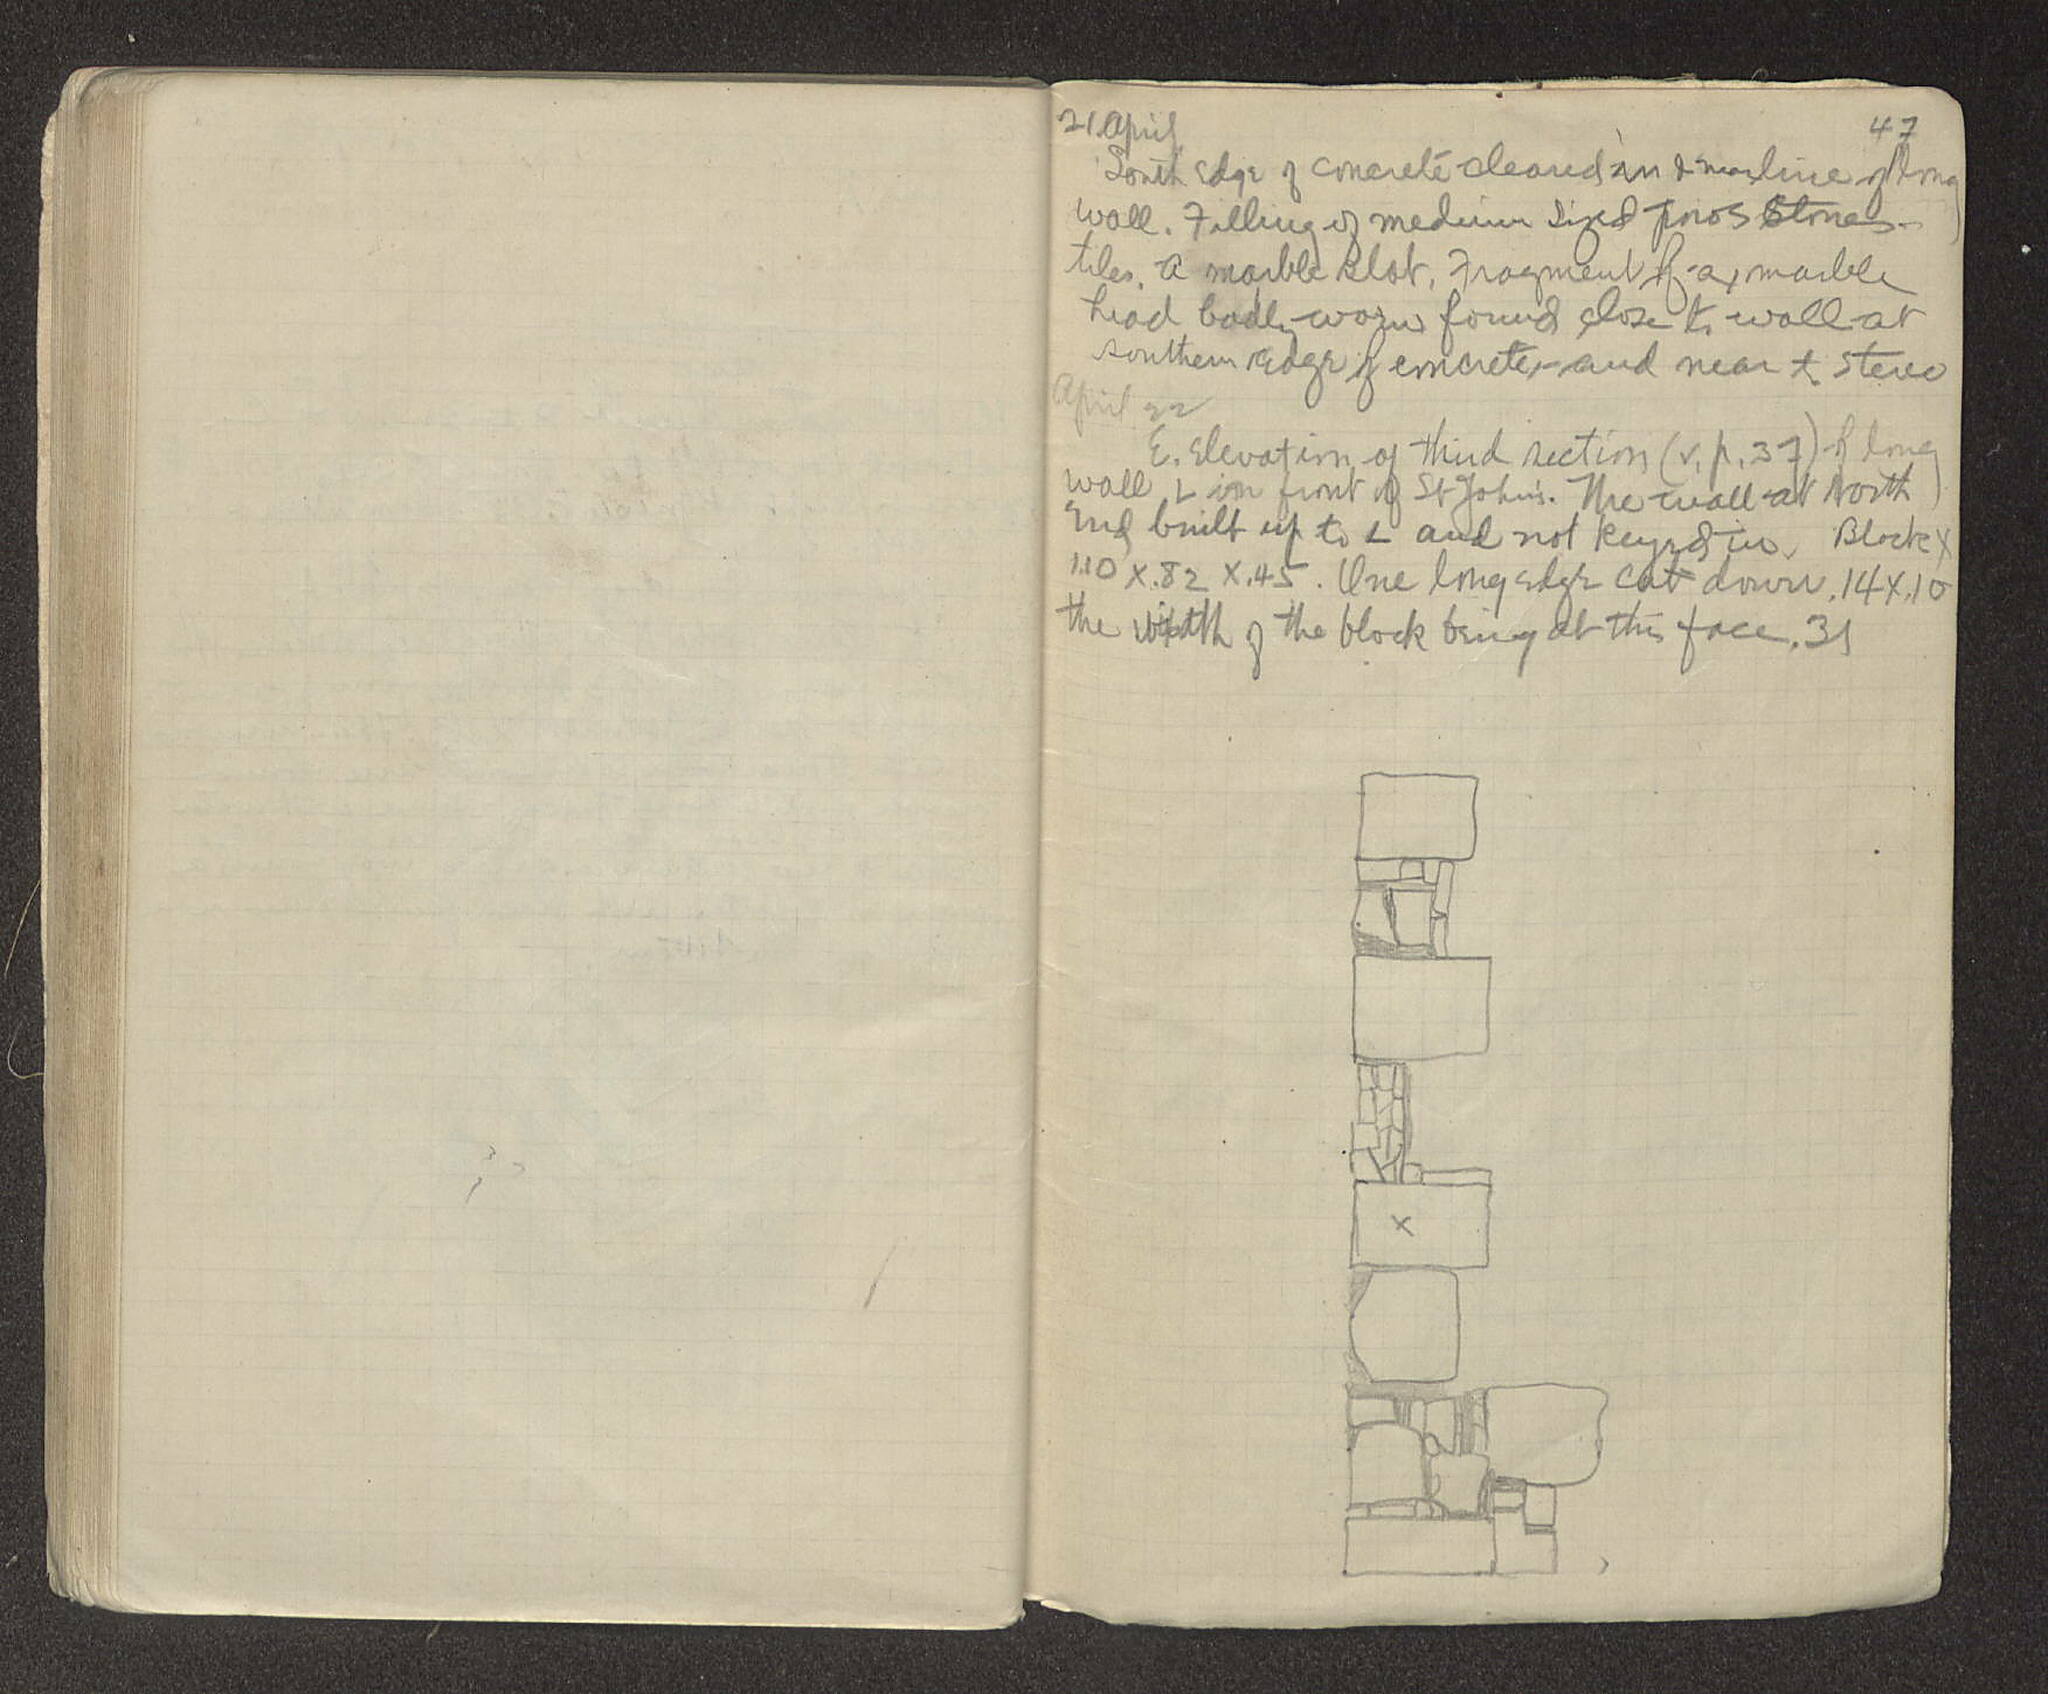 21 April
47
South edge of concrete cleared in & near line of long
wall. Filling of medium sized poros stones
tiles. A marble slat. Fragment of a marble
head badly worn found close to wall at
southern edge of concrete and near t. stereo
April 22
E. Elevation of third section (v. p. 37) of long
wall L in front of St John's. The wall at North
End built up to L and not keyed in. Block X
1.10 x .82 x .45. One long edge cut down .14 x .10
the width of the block being at this face .31
X